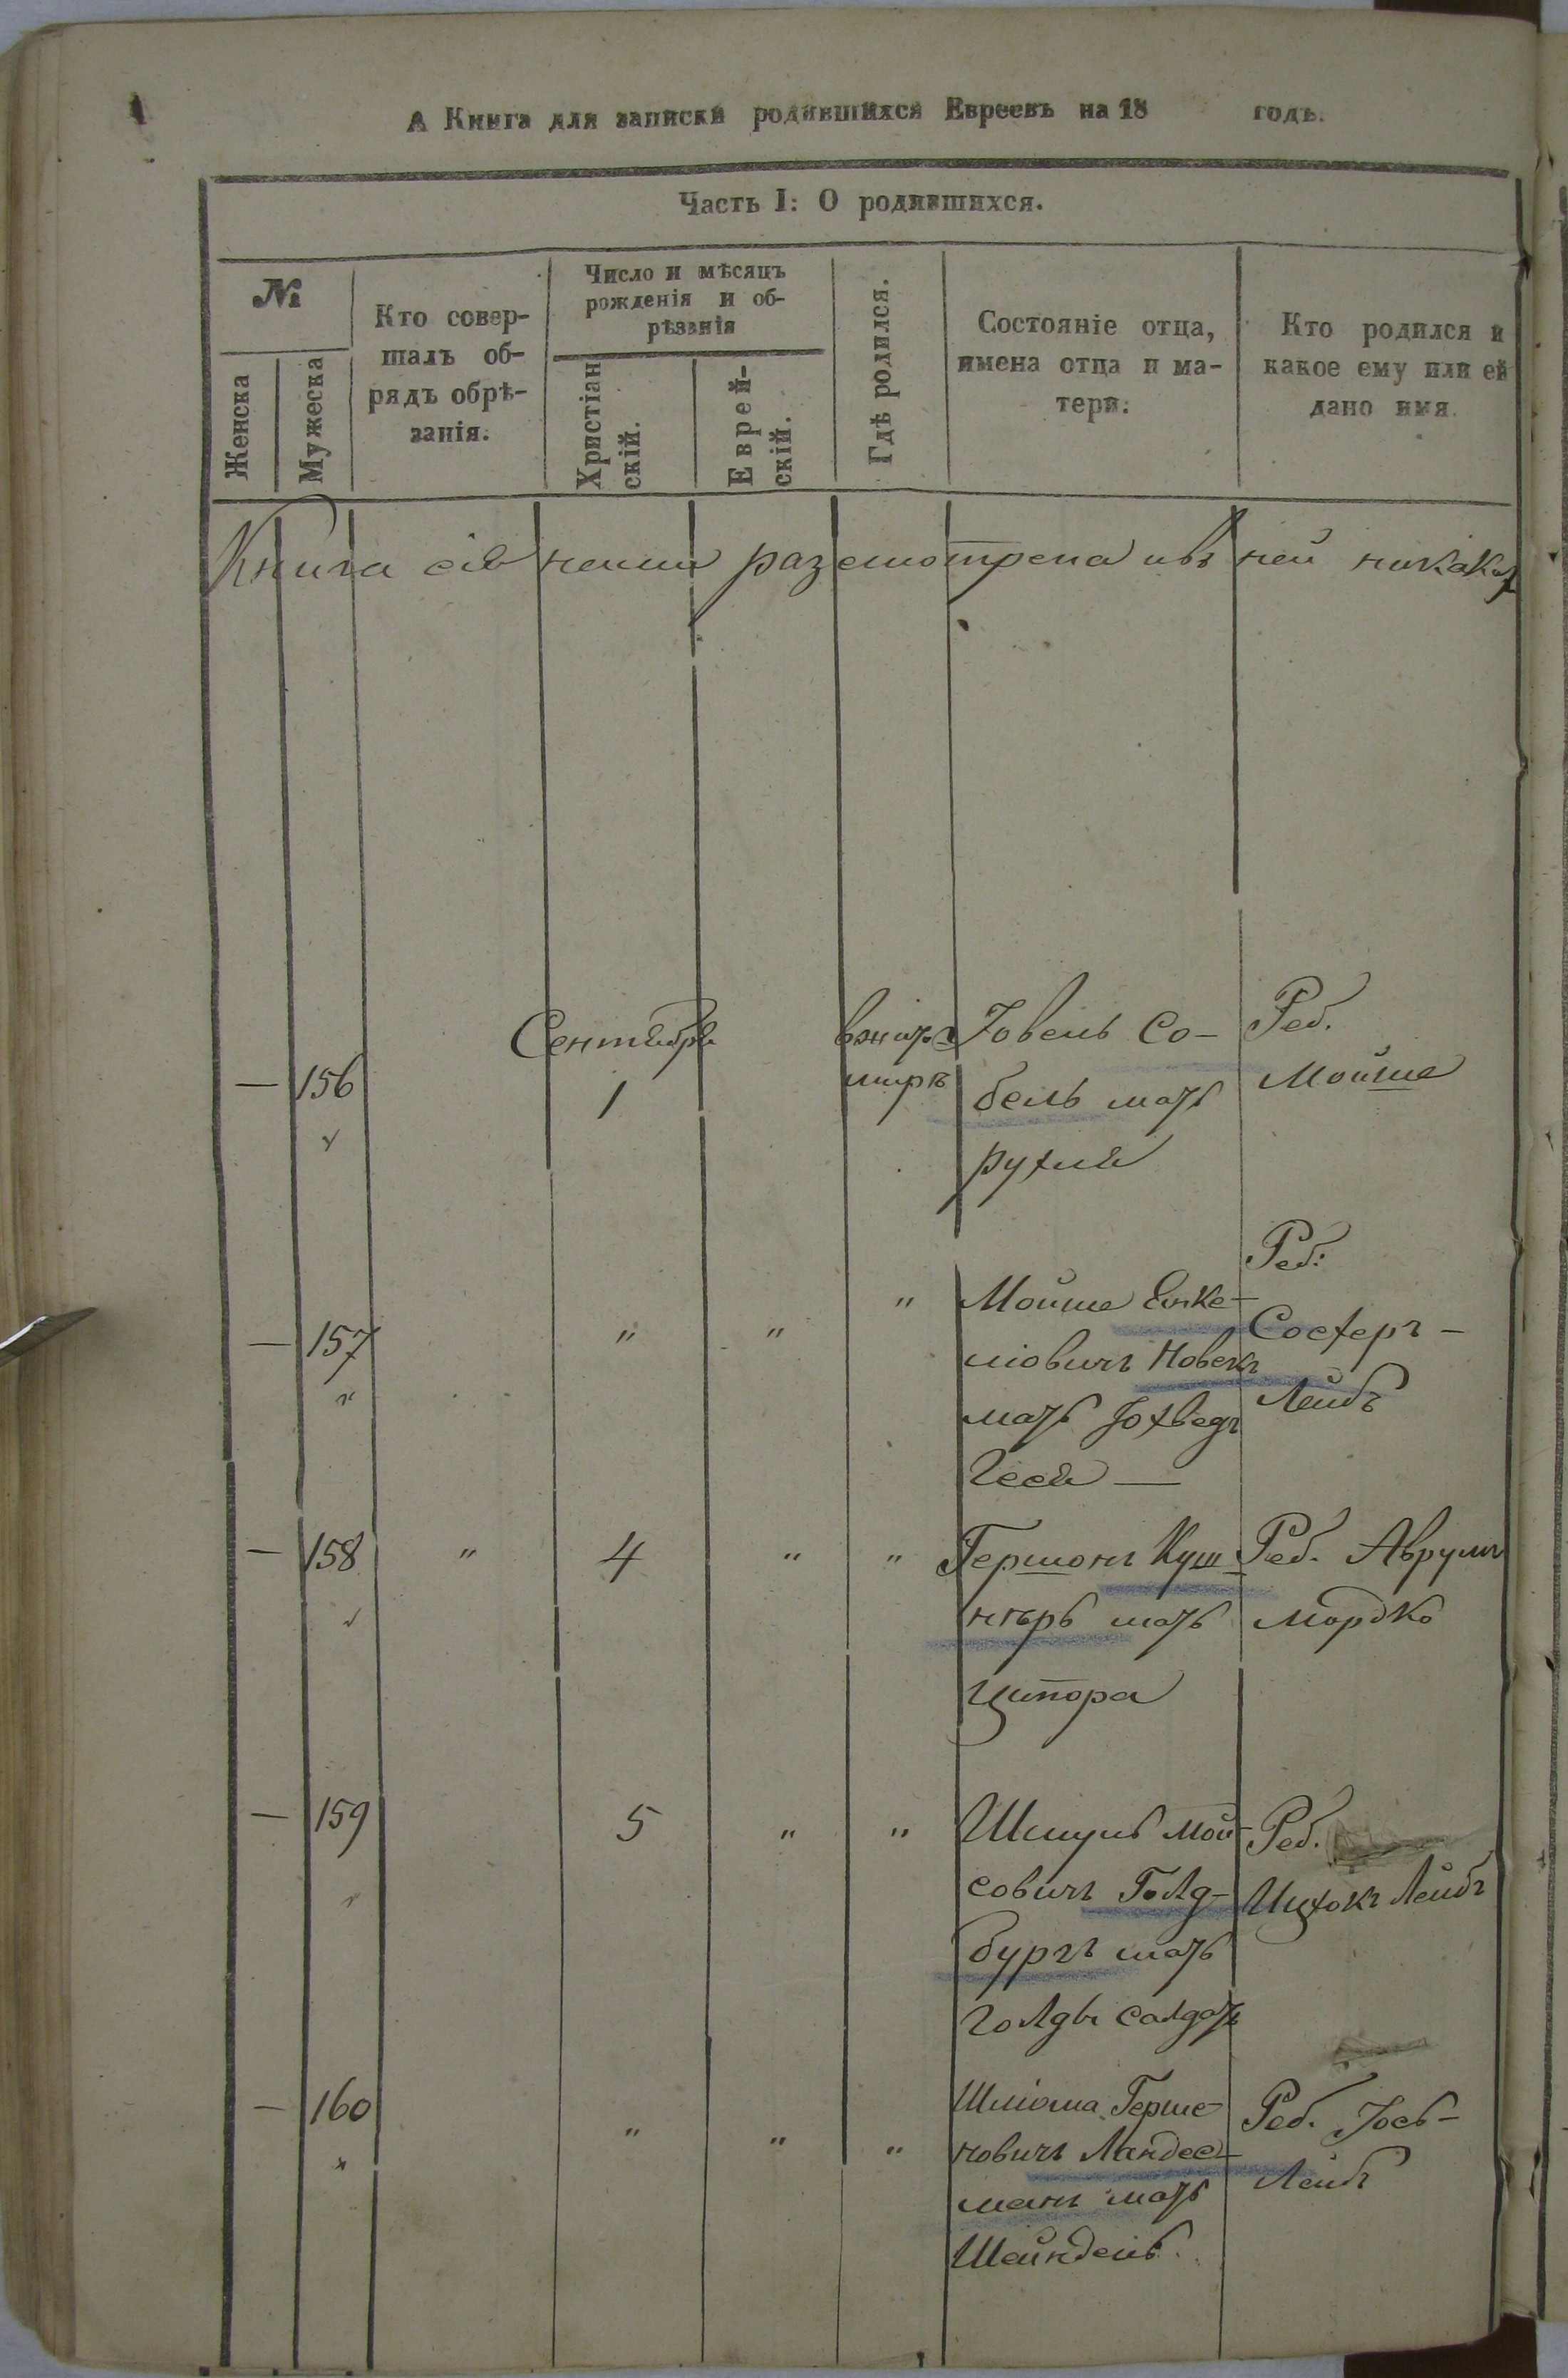 А Книга для записки родившихся Евреевъ на 18 годъ.
Часть I: О родившихся.
№
Женска
Мужеска
Кто совер-
шалъ об-
рядъ обрѣ-
занія.
Число и мѣсяцъ
рожденія и об-
рѣзанія
Христіан
скій.
Еврей-
скій.
Гдѣ родился.
Состояніе отца,
имена отца и ма-
тери.
Кто родился и
какое ему или ей
дано имя.
Книга сія нами разсмотрена ивъ ней никаких
— 156
Сентября
1
вжито
мирѣ
Іовель Со-
бель мать
рухля
Реб.
Мойше
— 157
"
"
"
Мойше Енке-
ліовичъ Новекъ
мать Іохведъ
Геся —
Реб:
Сохеръ —
Лейбъ
— 158
"
4
"
"
Гершонъ Куш-
ніръ мать
ципора
Реб. Аврумъ
мордко
— 159
5
"
"
Шмуль Мой-
совичъ Голд-
бургъ мать
голды салдатъ
Реб.
Ицхокъ Лейбъ
— 160
"
"
"
Шліома Герше-
новичъ Ландес-
манъ мать
Шейндель.
Реб. Іось-
Лейбъ